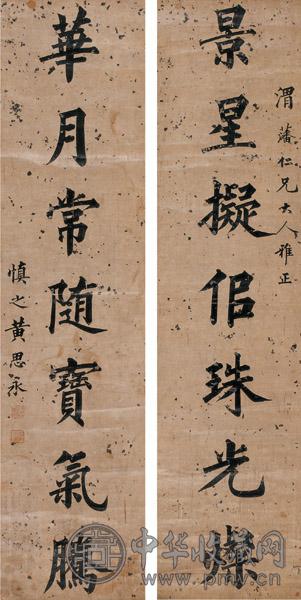 渭藩仁兄大人雅正
景星擬佀珠光燦
華月常隨寶氣騰
慎之黄思永
中华收藏网
www.pmv.cn